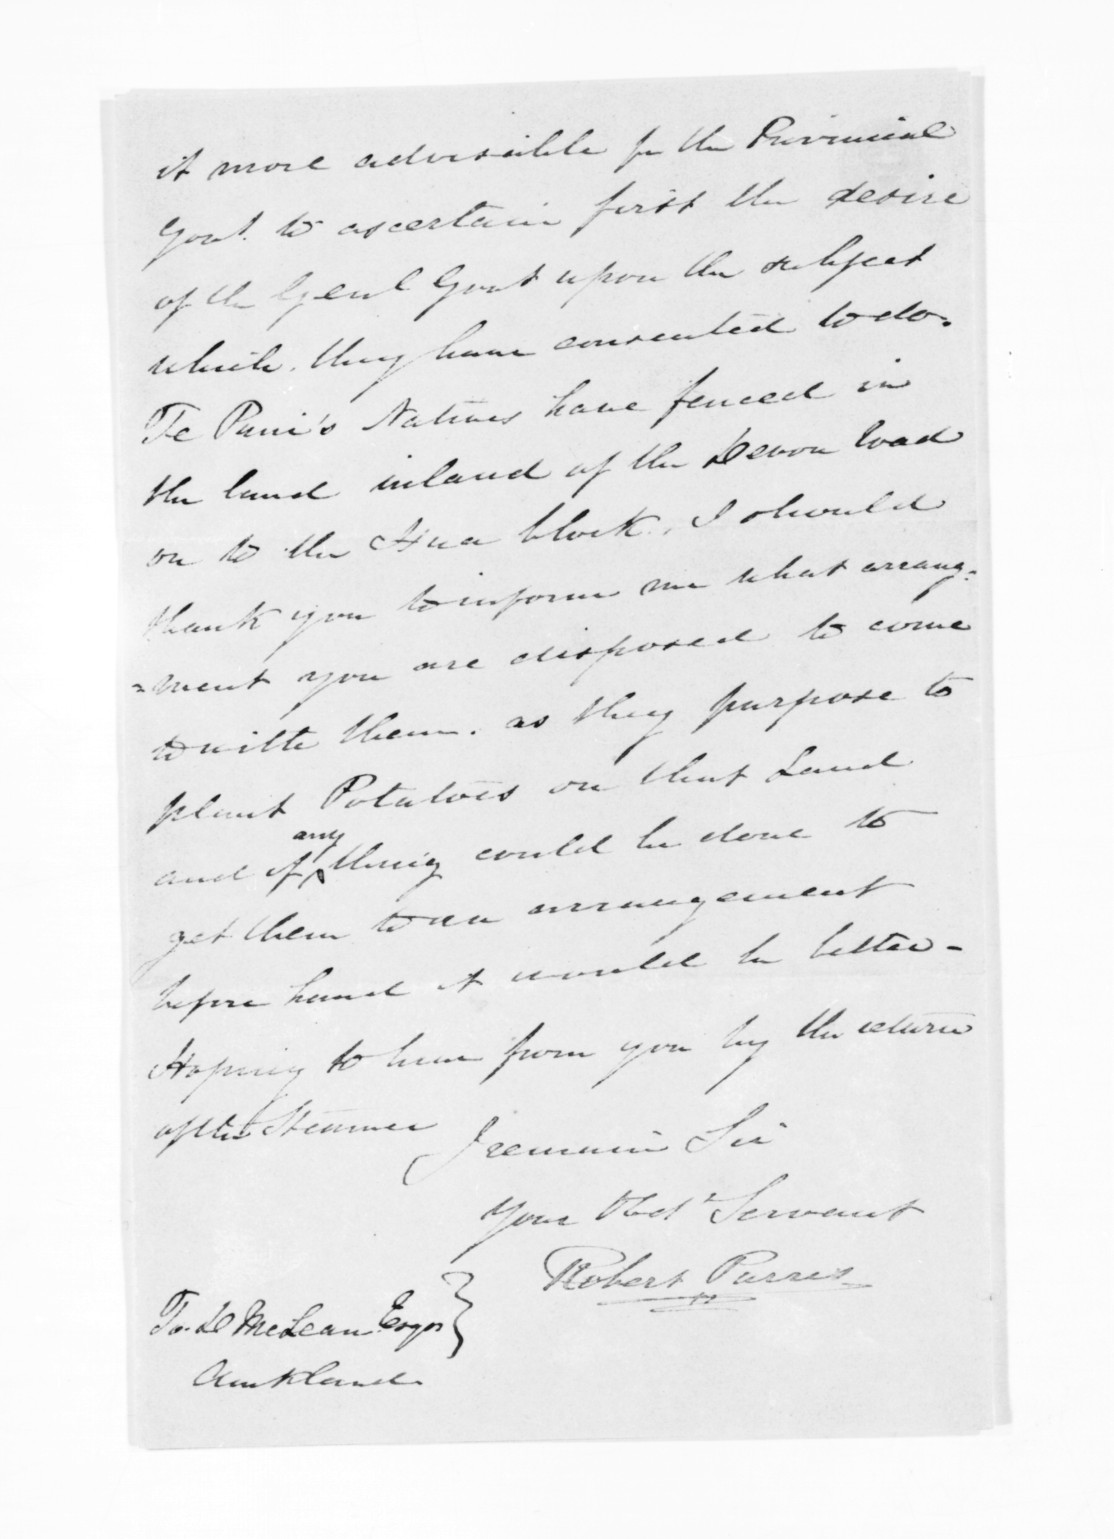 it more adviseable for the Provincial
Govt. to ascertain first the desire
of the Genl Govt upon the subject
which, they have consented to do.
Te Puni's Natives have fenced in
the land inland of the Devon road
on to the Hua block. I should
thank you to inform me what arrang-
=ment you are disposed to come
to with them. as they purpose to
plant Potatoes on that Land
and if any thing could be done to
get them to an arrangement
before hand it would be better-
Hoping to hear from you by the return
of the Steamer
I remain Sir
Your Obdt Servant
Robert Parris
To. D McLean Esqr
Auckland.